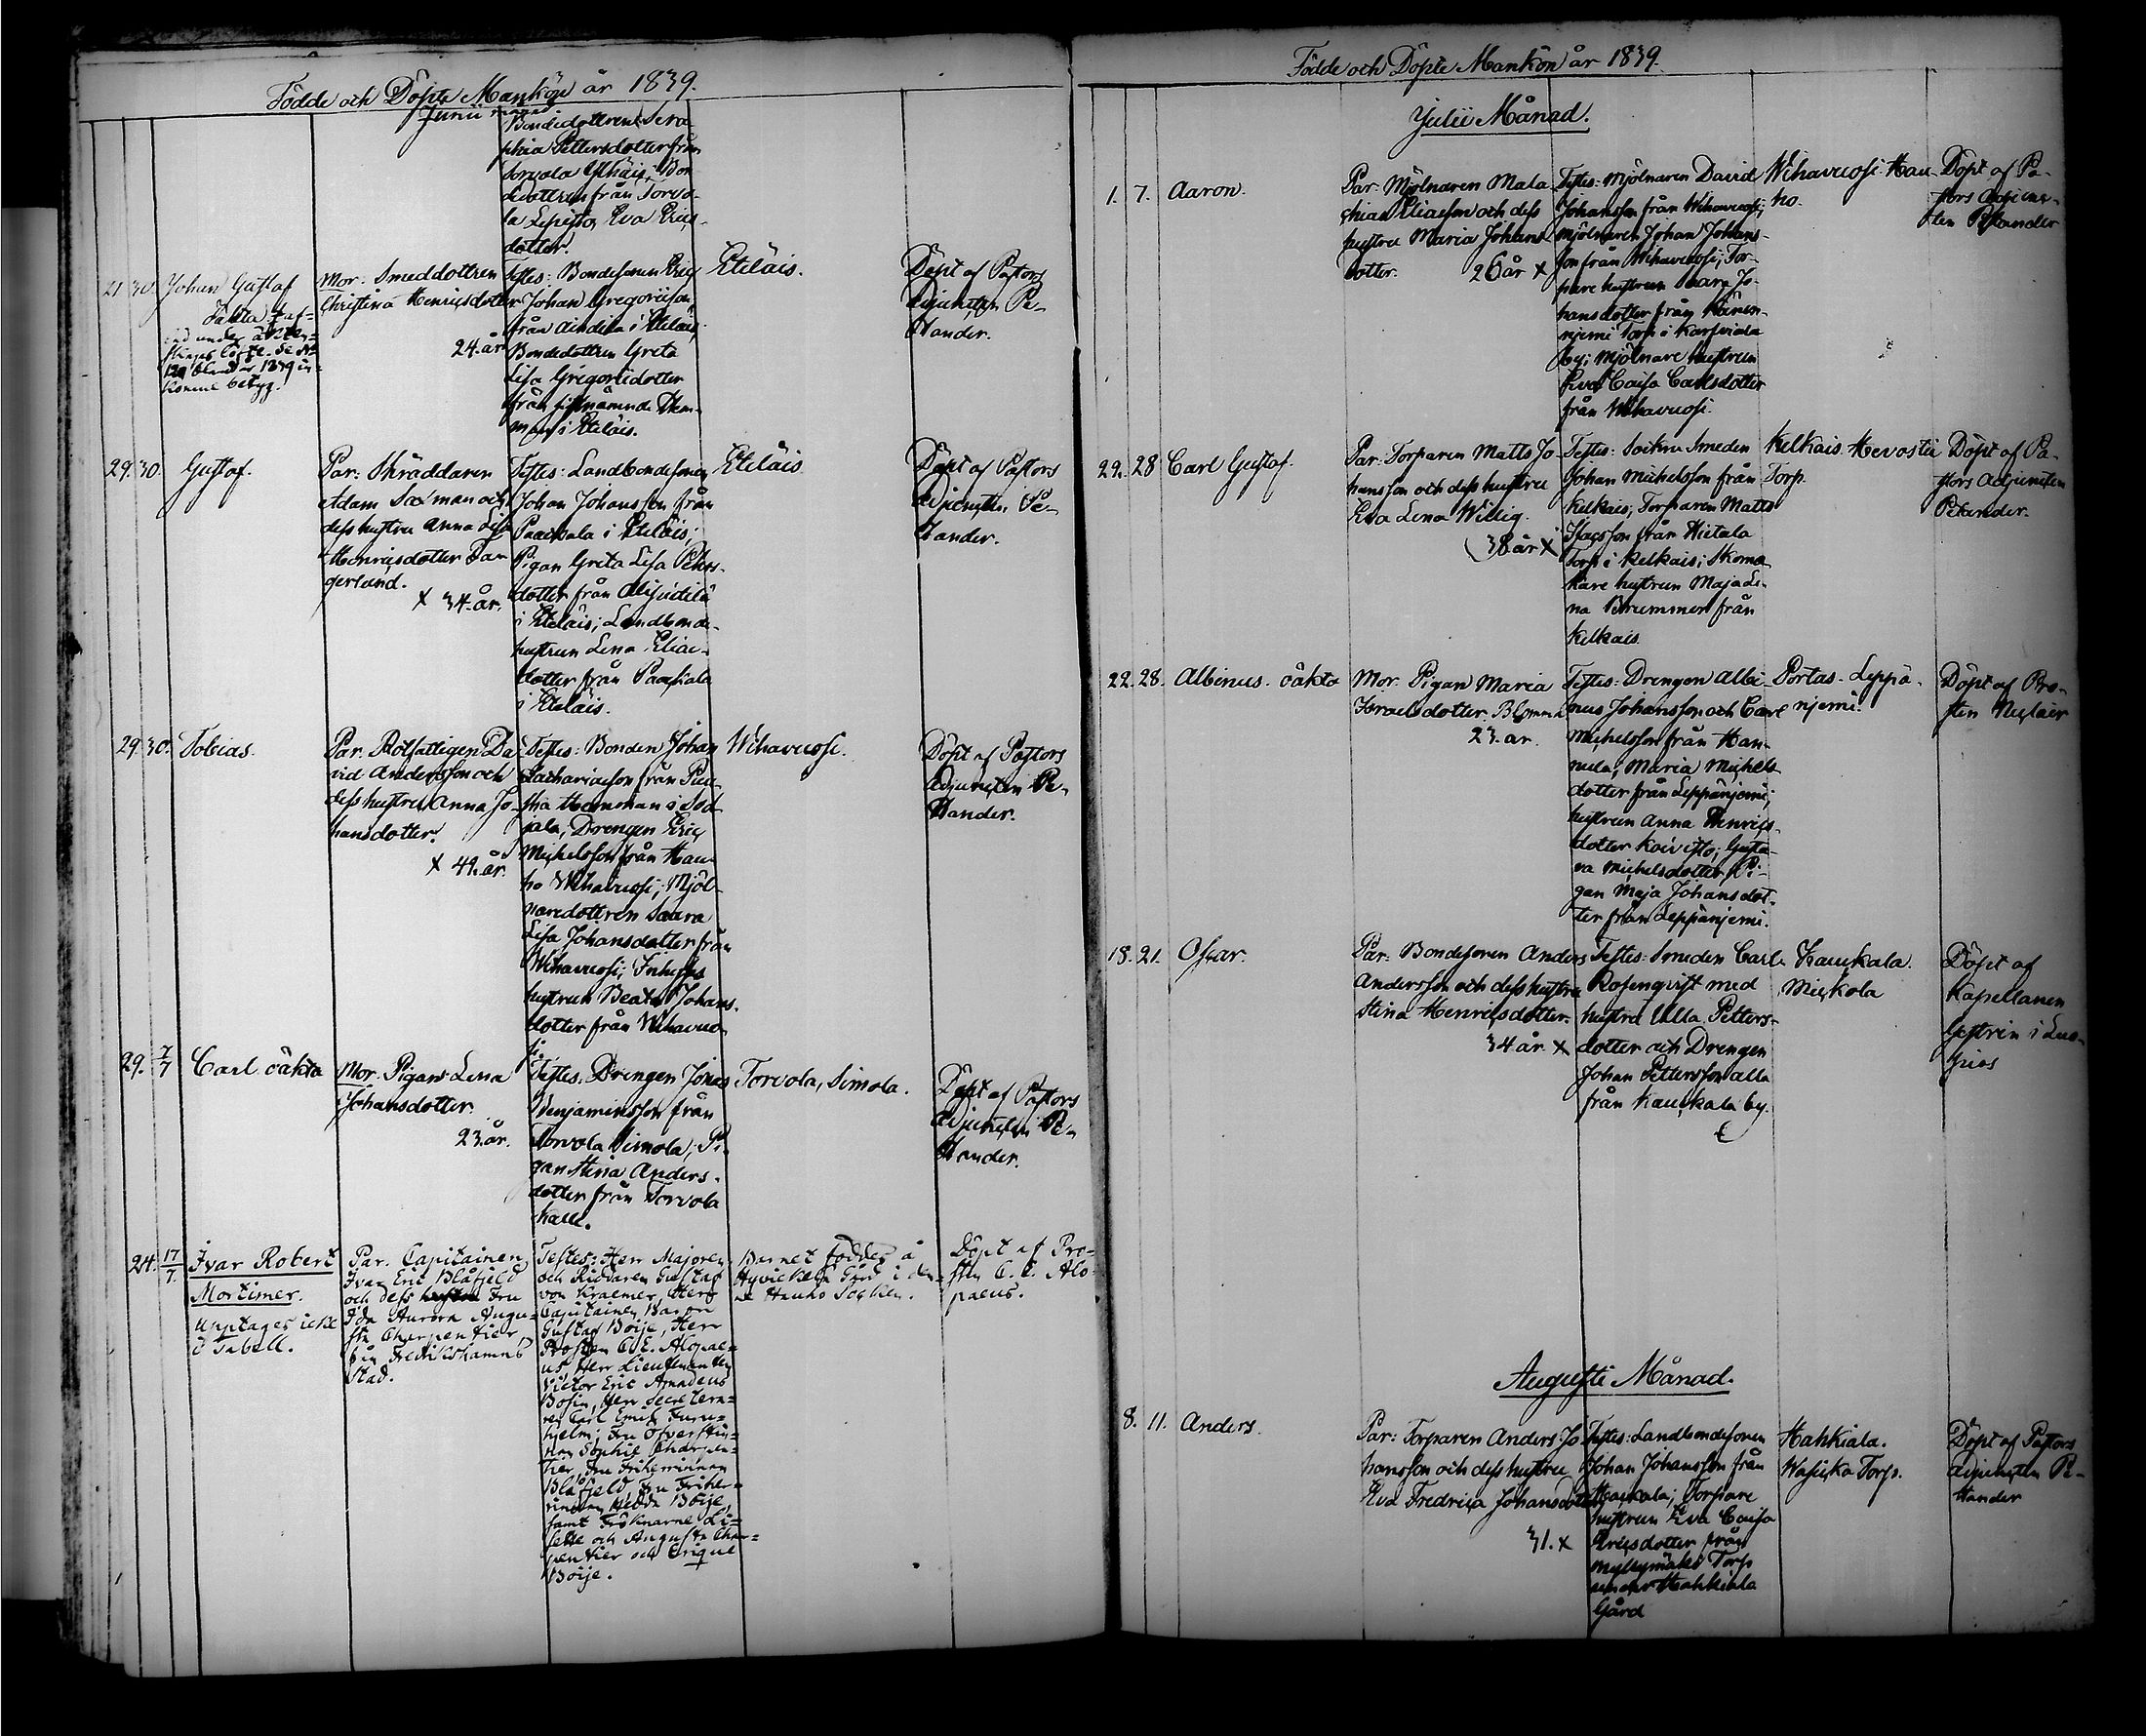 Födde och Döpte Mankön år 1839.
Junii
Bondedottren Sera-
phia Pettersdotter från
Torvola Ylhäis; Bon-
dedottren från Torvo-
la Lepistö, Eva Erics-
dotter.
21. 30. Johan Gustaf
Mor. Smeddottren
Christina Henricsdotter
24. år
Testes: Bondesonen Eric
Johan Gregoriison
från i Eteläis;
Bondedottren Greta
Lisa Gregoriidotter
från sistnämnde Hem-
man i Eteläis.
Eteläis.
Döpt af Pastors
Adjuncten Pe-
tander.
29. 30. Gustaf.
Par: Skräddaren
Adam och
dess hustru Anna Lisa
Henricsdotter
gerlund.
x 34. år.
Testes: Landbondesonen
Johan Johansson från
i Eteläis;
Pigan Greta Lisa Petters-
dotter från
i Eteläis; Landbonde-
hustrun Lena Eliae-
dotter från
i Eteläis.
Eteläis
Döpt af Pastors
Adjuncten Pe-
tander.
29. 30. Tobias.
Par. Rotfattigen Da-
vid Andersson och
dess hustru Anna Jo-
hansdotter.
x 49. år.
Testes: Bonden Johan
Zachariaeson från
Hemman i
jala, Drengen Eric
Michelsson från Hau-
ho Wihavuosi; Mjöl-
naredottren Saara
Lisa Johansdotter från
Wihavuosi; Inhyses
hustrun Beata Johans-
dotter från Wihavuo-
si.
Wihavuosi.
Döpt af Pastors
Adjuncten Pe-
tander.
29. 7/7 Carl oäkta
Mor. Pigan Lena
Johansdotter
23. år.
Testes. Drengen Jonas
Benjaminsson från
Torvola Simola; Pi-
gan Stina Anders-
dotter från Torvola
Torvola, Simola.
Döpt af Pastors
Adjuncten Pe-
tander.
24. 17/7. Ivar Robert
Mortimer.
upptages icke
i Tabell.
Par. Capitainen
Ivar Eric Blåfjeld
och dess hustru Fru
Ida Aurora Augu-
sta Charpentier
från Fredrikshamns
Stad.
Testes: Herr Majoren
och Riddaren Gustaf
von Kraemer, Herr
Capitainen Baron
Gustaf Boije, Herr
Prosten C. E. Alopae-
us Herr Lieutenanten
Victor Eric Amadeus
Bosin, Herr Secretera-
ren Carl Emil Furu-
hjelm; Fru Öfverstin-
nan Sophie Charpen-
tier, Fru Friherrinnan
Blåfjeld, Fru Friher-
rinnan Hedda Boije
samt Fröknarne Li-
sette och Augusta Char-
pentier och Erique
Boije.
Barnet föddes å
Hyvickelä Gård i den-
na Hauho Socken.
Döpt af Pro-
sten C. E. Alo-
paeus.
Födde och Döpte Mankön år 1839.
Julii Månad.
1. 7. Aaron.
Par: Mjölnaren Mala-
chias Eliaeson och dess
hustru Maria Johans-
dotter. 26 år x
Testes: Mjölnaren David
Johansson från Wihavuosi;
Mjölnaren Johan Johans-
son från Wihavuosi; Tor-
pare hustrun Maria Jo-
hansdotter från
njemi Torp i Karsiala
by; Mjölnare hustrun
Eva Caisa Carlsdotter
från Wihavuosi.
Wihavuosi. Hau-
ho.
Döpt af Pa-
stors Adjunc-
ten Petander
22. 28 Carl Gustaf.
Par: Torparen Matts Jo-
hansson och dess hustru
Eva Lena Willig.
38 år x
Testes: Socken Smeden
Johan Michelsson från
Kelkais; Torparen Matts
Isacsson från Hietala
Torp i Kelkais; Skoma-
kare hustrun Maja Le-
na Brummer från
Kelkais.
Kelkais. Hevostie
Torp.
Döpt af Pa-
stors Adjuncten
Petander.
22. 28. Albinus. oäkta
Mor: Pigan Maria
Israelsdotter
23. år.
Testes: Drengen Albi-
nus Johansson och Carl
Michelsson från Han-
nula; Maria Michels-
dotter från Leppänjemi;
hustrun Anna Henrics-
dotter Koivisto; Gusta-
va Michelsdotter Pi-
gan Maja Johansdot-
ter från Leppänjemi.
Portas. Leppä-
njemi.
Döpt af Pro-
sten
18. 21. Oscar.
Par: Bondesonen Anders
Andersson och dess hustru
Stina Henricsdotter.
34 år x
Testes: Smeden Carl
Rosenqvist med
hustru Ulla Petters-
dotter och Drengen
Johan Pettersson alla
från Kauckala by.
Kauckala.
Mickola
Döpt af
Kapellanen
i Luo-
pios
Augusti Månad.
8. 11. Anders.
Par: Torparen Anders Jo-
hansson och dess hustru
Eva Fredrica Johansdotter
31. x
Testes: Landbondesonen
Johan Johansson från
Torpare
hustrun Eva Caisa
Ericsdotter från
Myllymäki Torp
under Hahkiala
Gård
Hahkiala.
Torp.
Döpt af Pastors
Adjuncten Pe-
tander